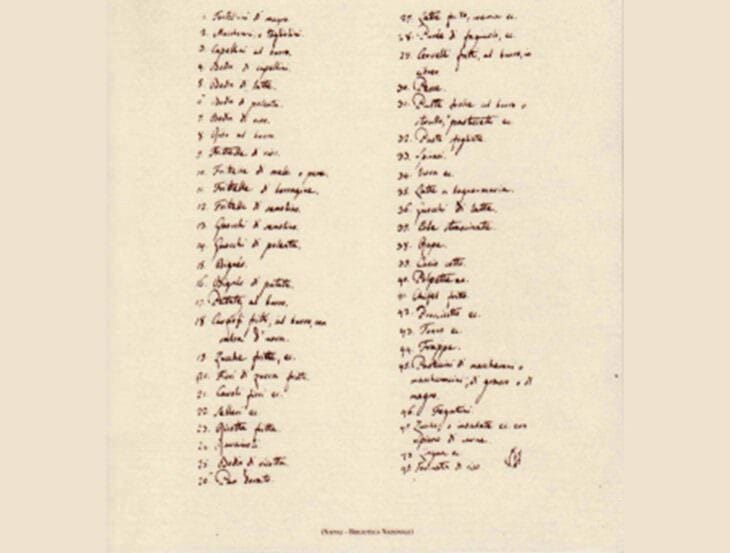 1. Tortellini di magro.
2. Maccheroni o tagliolini.
3. Capellini al burro.
4. Bodin di capellini.
5. Bodin di latte.
6. Bodin di polenta.
7. Bodin di riso.
8. Riso al burro.
9. Frittelle di riso.
10. Frittelle di mele o pere.
11. Frittelle di borragine.
12. Frittelle di semolino.
13. Gnocchi di semolino.
14. Gnocchi di polenta.
15. Bignés.
16. Bignés di patate.
17. Patate, al burro.
18. Carciofi fritti, al burro, con
salsa d'uova.
19. Zucche fritte, ec.
20. Fiori di zucca fritti.
21. Cavoli fiori ec.
22. Selleri ec.
23. Ricotta fritta.
24.
25. Bodin di ricotta.
26. Pan dorato.
27. Latte fritto, crema ec.
28. di fagiuoli, ec.
29. Cervelli fritti, al burro, in
30. Pesce.
31. Paste frolle al burro o
strutto, pasticcetti ec.
32. Paste sfogliate.
33. Spinaci.
34. Uova ec.
35. Latte a bagno-maria.
36. Gnocchi di latte.
37. Erbe strascinate.
38. Rape.
39. Cacio cotto.
40. Polpette ec.
41. Chifel fritti.
42. Prosciutto ec.
43. Tonno ec.
44. Frappe.
45. Pasticcini di maccheroni o
maccheroncini, di grasso o di
magro.
46. Fegatini.
47. Zucche, o insalate ec. con
ripieno di carne.
48. Lingua ec.
49. Farinata di riso
(Napoli - Biblioteca Nazionale)